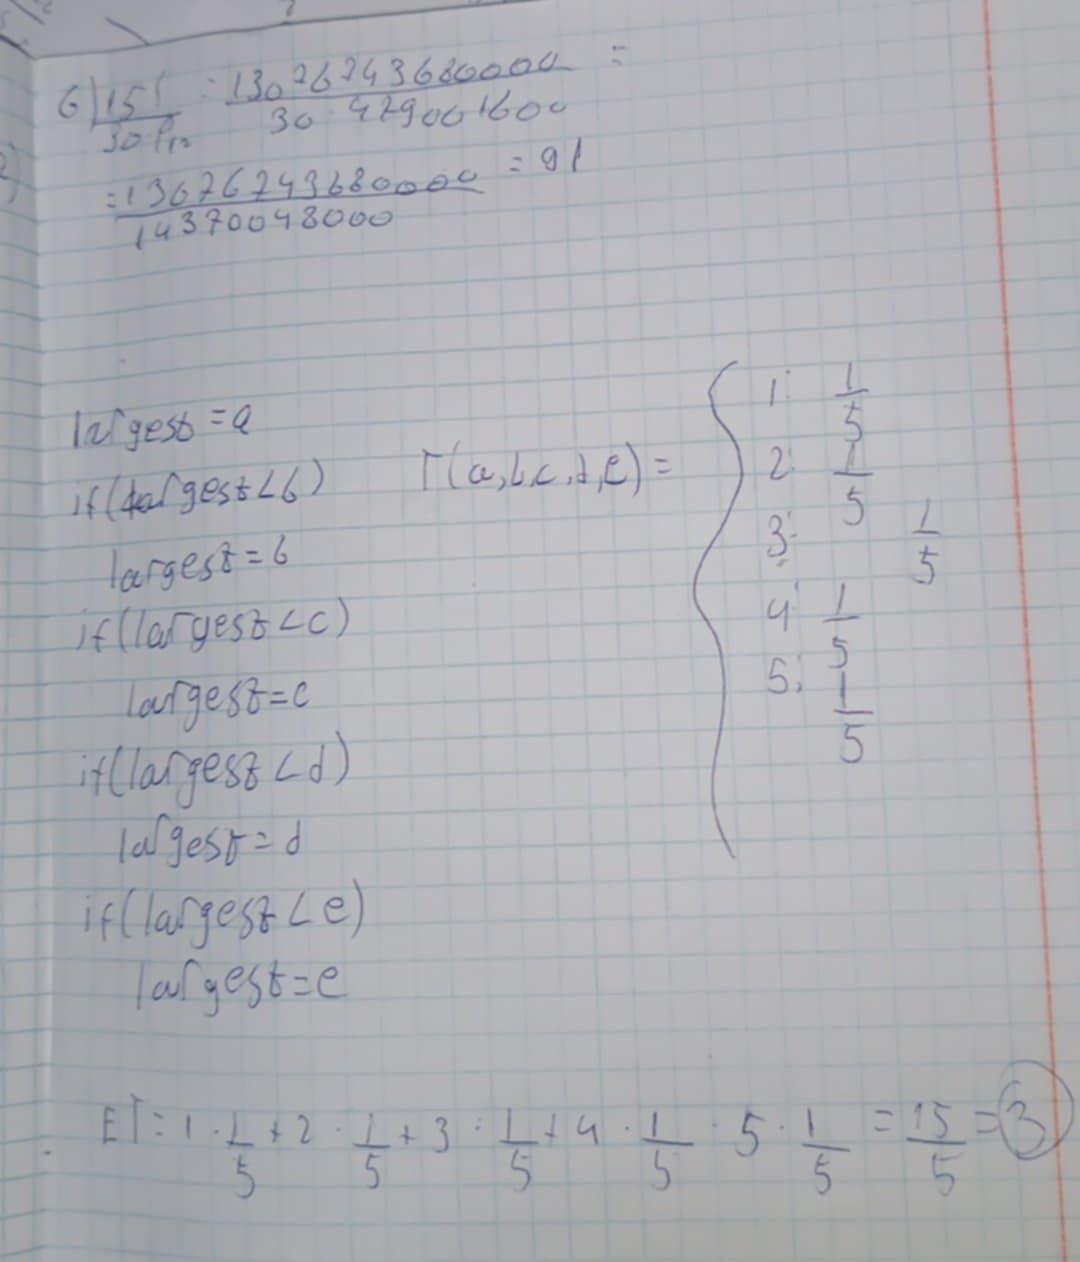 6) 15! / 30 P12 = 13076743680000 / 30 · 479001600 =
= 13076743680000 / 14370048000 = 91
largest = a
if(largest < b)
largest = b
if(largest < c)
largest = c
if(largest < d)
largest = d
if(largest < e)
largest = e
T(a,b,c,d,e) =
1: 1/5
2: 1/5
3: 1/5
4: 1/5
5: 1/5
ET = 1 · 1/5 + 2 · 1/5 + 3 · 1/5 + 4 · 1/5 · 5 · 1/5 = 15/5 = 3